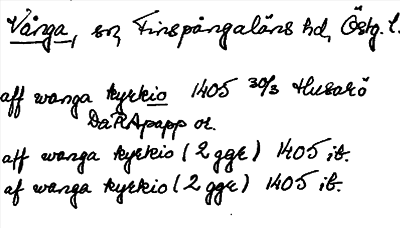 Vånga, sn, Finspångaläns hd, Östg. l.
aff wanga kyrkio 1405 30/3 Husarö
DaRApapp or.
aff wanga kyrkio (2 ggr) 1405 ib.
af wanga kyrkio (2 ggr) 1405 ib.